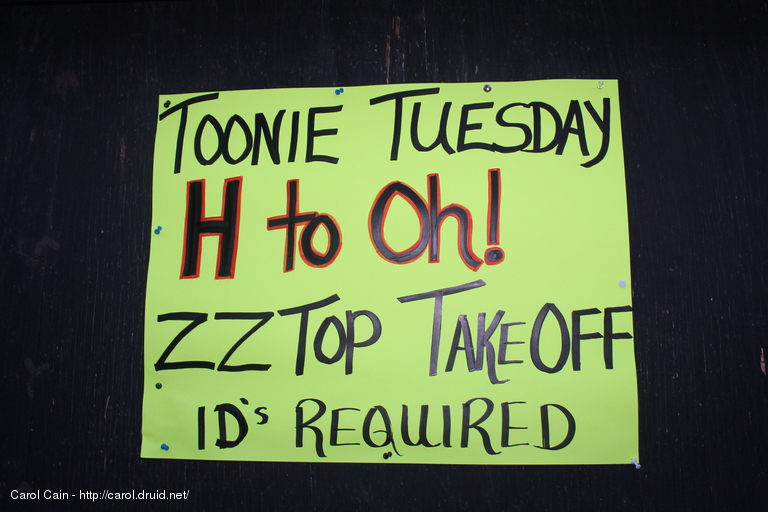 TOONIE TUESDAY
H to Oh!
ZZ TOP TAKEOFF
ID's REQUIRED
Carol Cain - http://carol.druid.net/